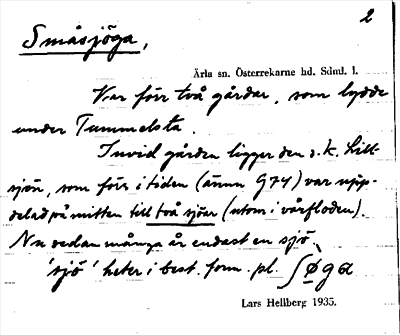 2
Småsjöga,
Ärla sn. Österrekarne hd. Sdml. l.
Var förr två gårdar, som lydde
under Tummelsta.
Invid gården ligger den s.k. Lill-
sjön, som förr i tiden (ännu G74) var upp-
delad på mitten till två sjöar (utom i vårfloden).
Nu sedan många år endast en sjö.
'sjö' heter i best. form. pl. ʃøga
Lars Hellberg 1935.